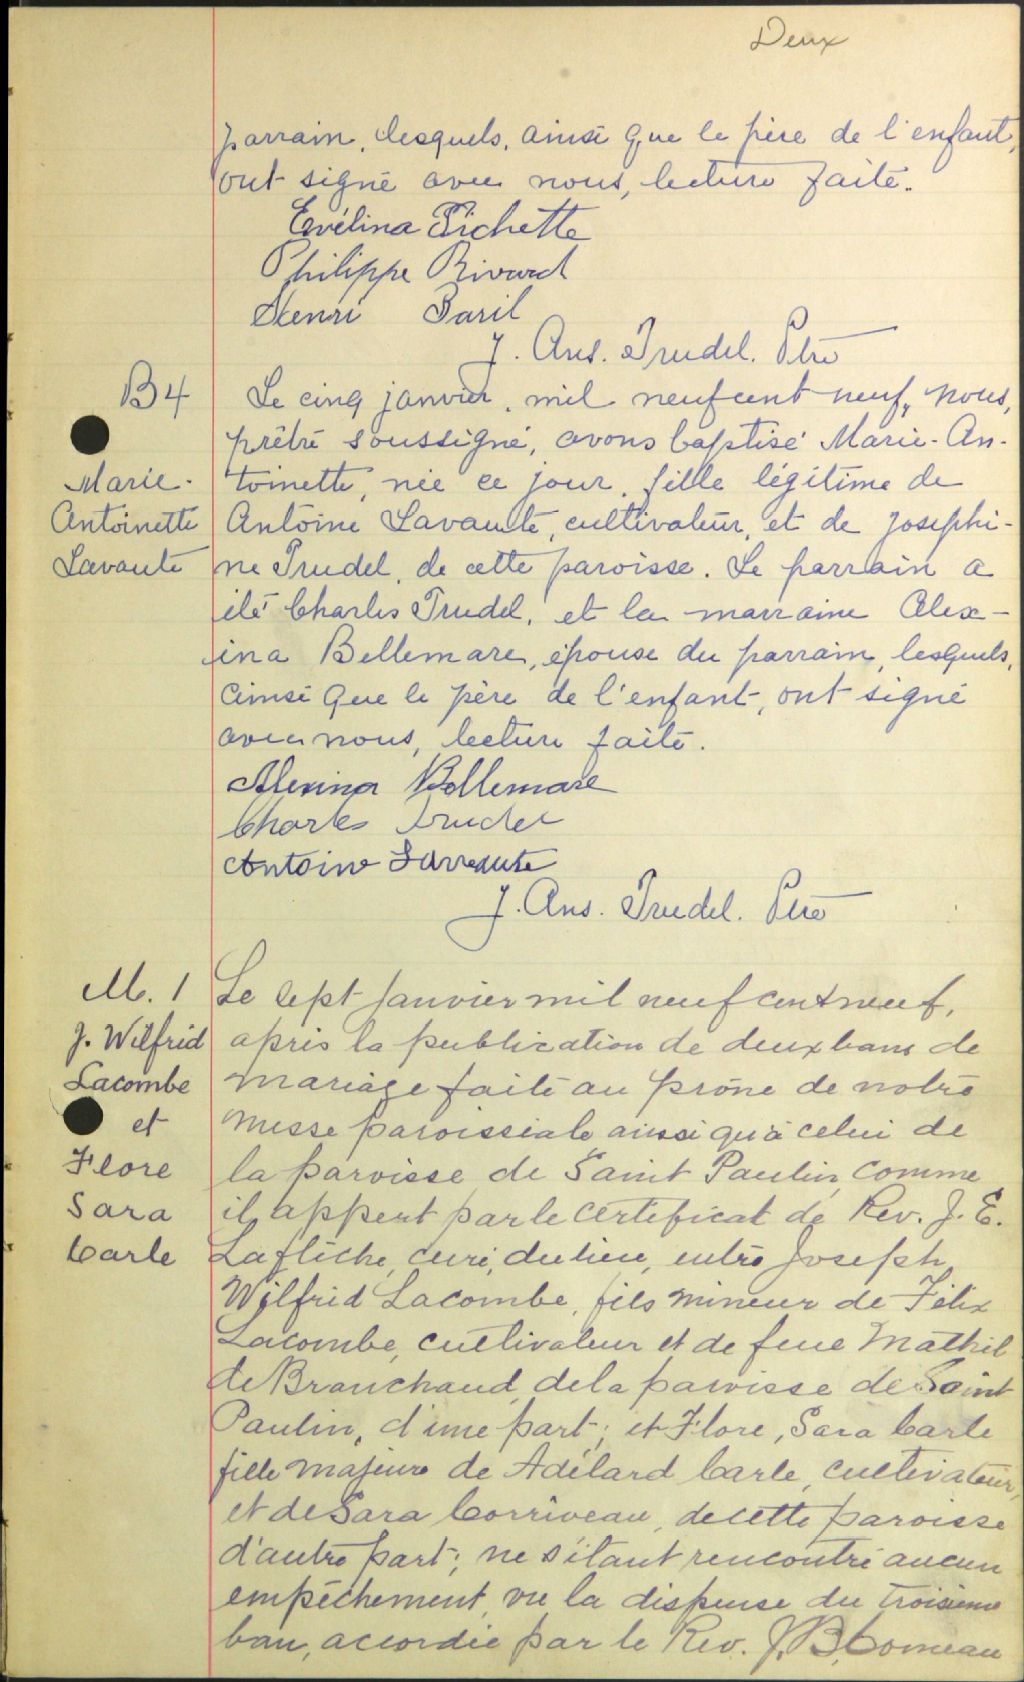 Deux
parrain, lesquels, ainsi que le père de l'enfant,
ont signé avec nous, lecture faite.
Evélina Pichette
Philippe Rivard
Henri Baril
J. Ans. Trudel. Ptre
B4
Le cinq janvier, mil neuf cent neuf, nous,
prêtre soussigné, avons baptisé Marie-An-
Marie-
toinette, née ce jour, fille légitime de
Antoinette
Antoine Lavaute, cultivateur, et de Josephi-
Lavaute
ne Trudel, de cette paroisse. Le parrain a
été Charles Trudel, et la marraine Alex-
ina Bellemare, épouse du parrain, lesquels,
ainsi que le père de l'enfant, ont signé
avec nous, lecture faite.
Alexina Bellemare
Charles Trudel
Antoine Lavaute
J. Ans. Trudel. Ptre
M. 1
Le sept janvier mil neuf cent neuf,
J. Wilfrid
après la publication de deux bans de
Lacombe
mariage faite au prône de notre
et
messe paroissiale ainsi qu'à celui de
Flore
la paroisse de Saint Paulin, comme
Sara
il appert par le certificat de Rev. J. E.
Carle
Laflèche, curé, du lieu, entre Joseph
Wilfrid Lacombe, fils mineur de Félix
Lacombe, cultivateur et de feue Mathil
de Branchaud, de la paroisse de Saint
Paulin, d'une part; et Flore, Sara Carle
fille majeure de Adélard Carle, cultivateur,
et de Sara Corriveau, de cette paroisse
d'autre part; ne s'étant rencontré aucun
empêchement, vu la dispense du troisième
ban, accordée par le Rev. J. B. Comeau